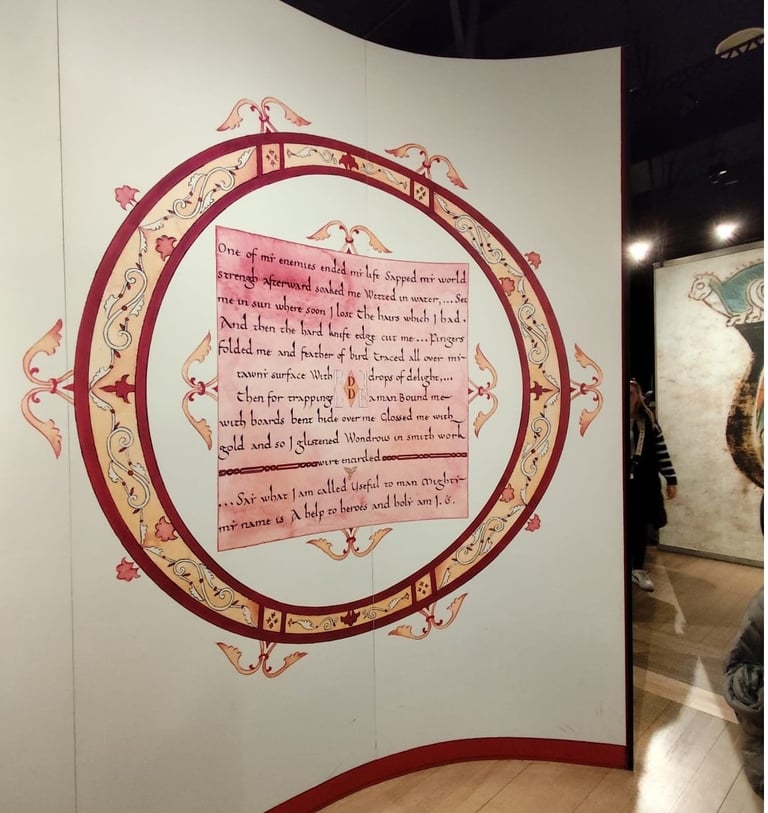 One of my enemies ended my life Sapped my world
strengh afterward soaked me Wetted in water,... Set
me in sun where soon I lost the hairs which I had.
And then the hard knife edge cut me... Fingers
folded me and feather of bird traced all over my
tawny surface With drops of delight,...
Then for trapping a man Bound me
with boards bent hide over me Glossed me with
gold and so I glistened Wondrous in smith work
wire encircled
...Say what I am called Useful to man Mighty
my name is A help to heroes and holy am I.